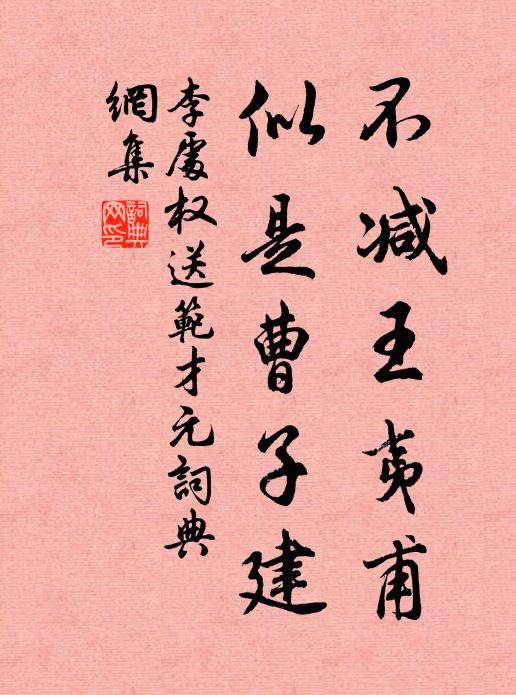 不减王夷甫
似是曹子建
李處权送範才元詞典
網集
詞典網印